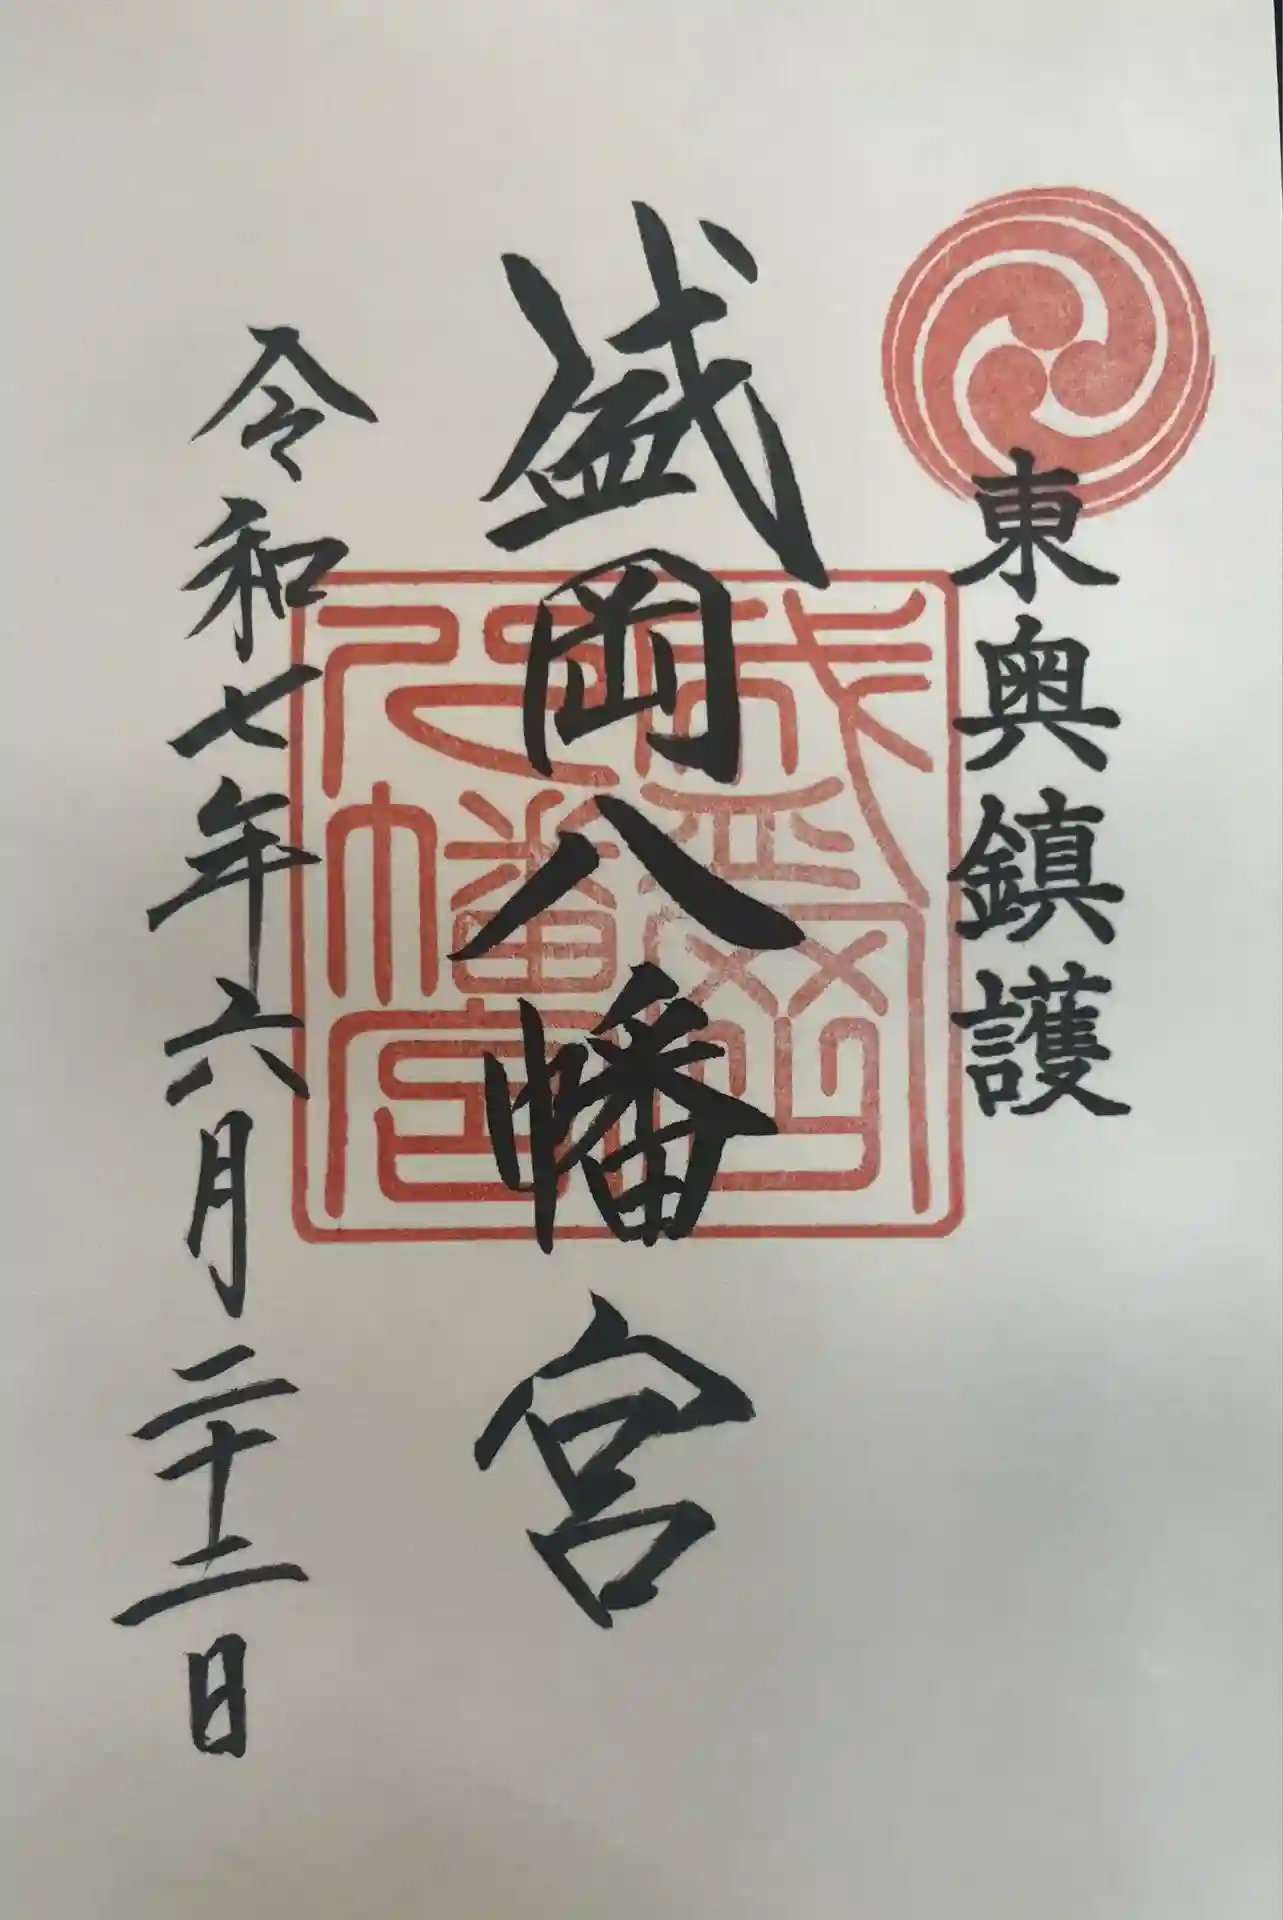 東奥鎮護
盛岡八幡宮
盛岡
八幡宮
令和七年六月二十二日